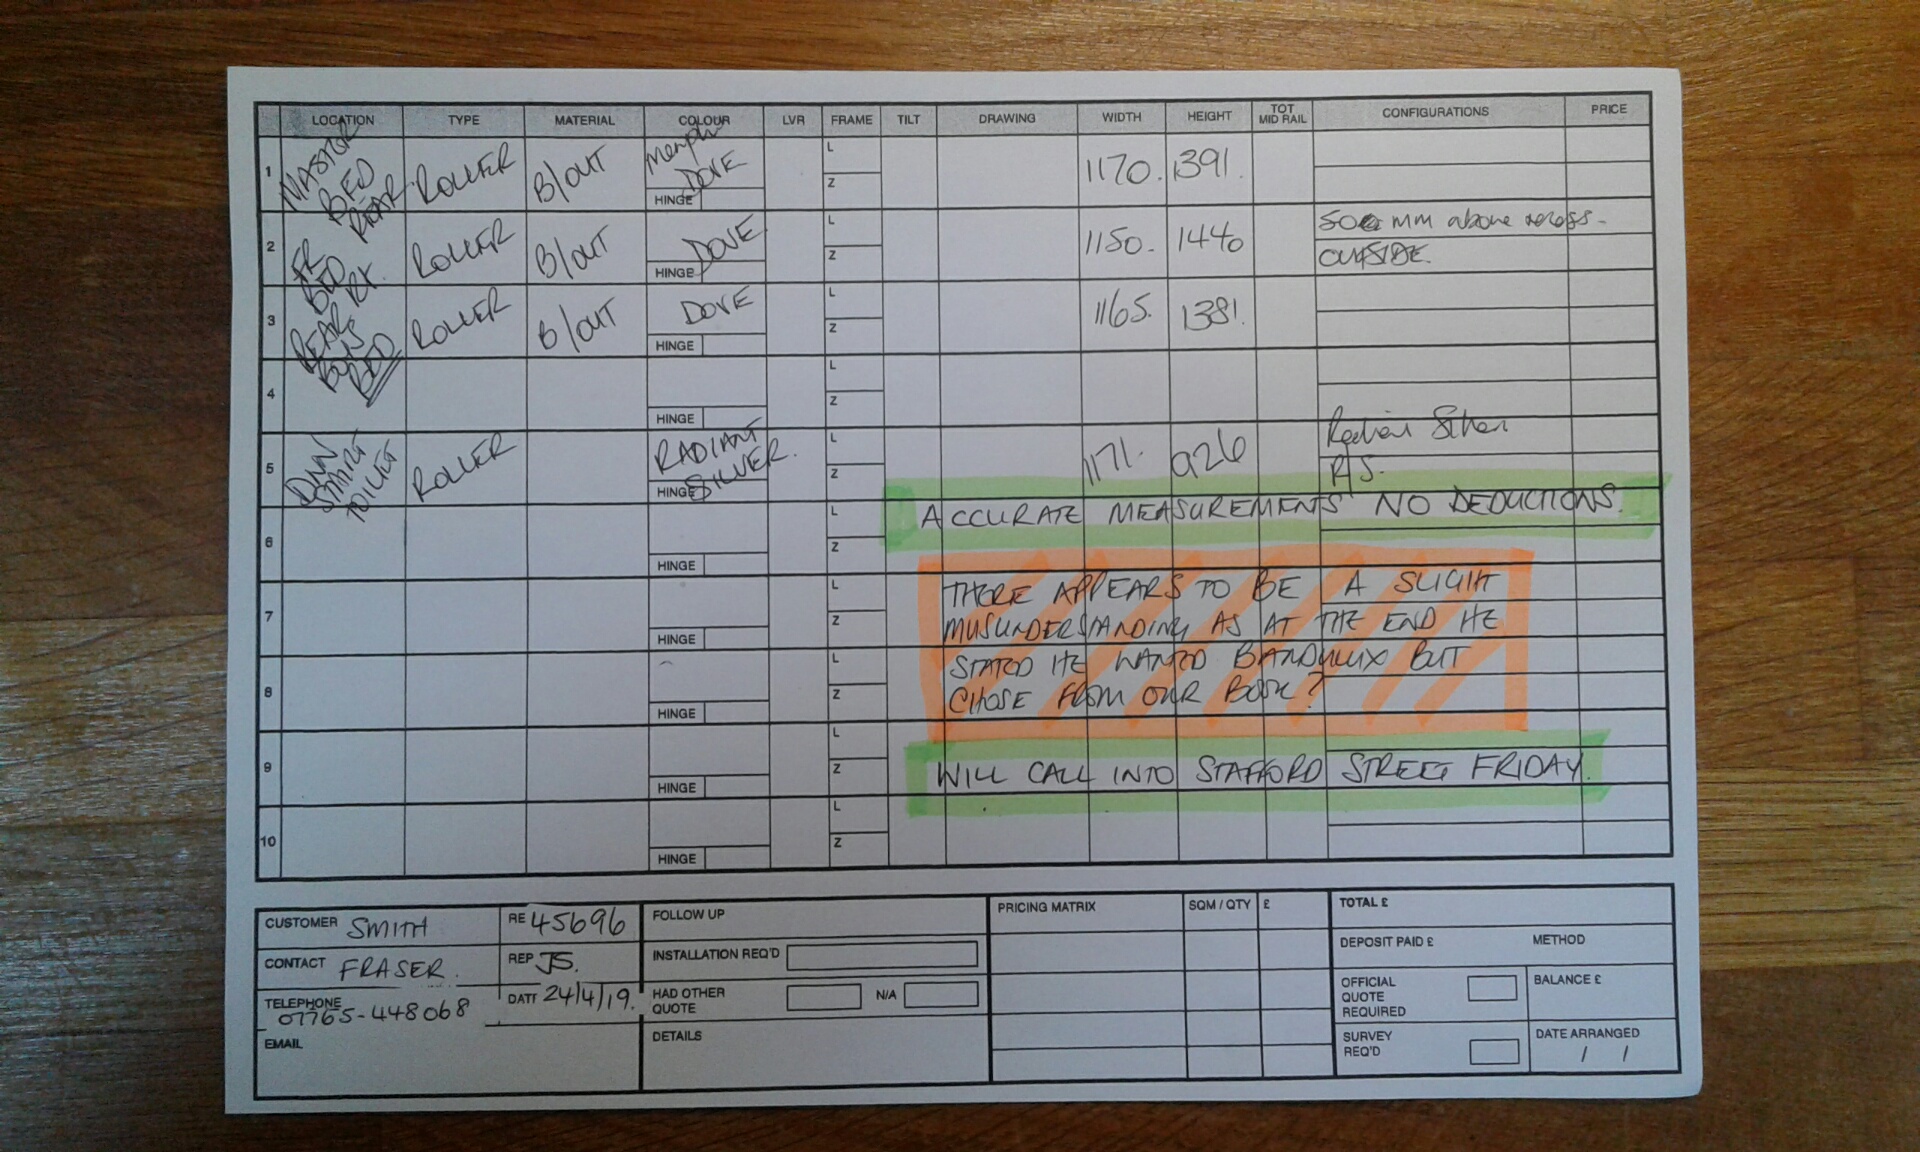 LOCATION TYPE MATERIAL COLOUR LVR FRAME TILT DRAWING WIDTH HEIGHT TOT MID RAIL CONFIGURATIONS PRICE
1 MASTER BED REAR ROLLER B/OUT DOVE HINGE L Z 1170. 1391.
2 FR BED ROLLER B/OUT DOVE HINGE L Z 1150. 1440 mm above recess -
OUTSIDE.
3 REAR BOYS BED ROLLER B/OUT DOVE HINGE L Z 1165. 1381.
4 HINGE L Z
5 TOILET ROLLER RADIANT SILVER. HINGE L Z 1171. 926 R/S.
6 HINGE L Z
ACCURATE MEASUREMENTS NO DEDUCTIONS.
7 HINGE L Z
THERE APPEARS TO BE A SLIGHT
MISUNDERSTANDING AS AT THE END HE
8 HINGE L Z
STATED HE WANTED BANDALUX BUT
CHOSE FROM OUR BOOK?
9 HINGE L Z
WILL CALL INTO STAFFORD STREET FRIDAY.
10 HINGE L Z
CUSTOMER SMITH
CONTACT FRASER.
TELEPHONE
07765-448068
EMAIL
RE 45696
REP JS.
DATE 24/4/19.
FOLLOW UP
INSTALLATION REQ'D
HAD OTHER QUOTE N/A
DETAILS
PRICING MATRIX SQM / QTY £
TOTAL £
DEPOSIT PAID £ METHOD
OFFICIAL QUOTE REQUIRED
BALANCE £
SURVEY REQ'D
DATE ARRANGED
/ /